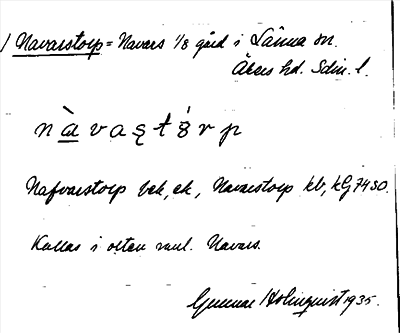 1 Navarstorp = Navars 1/8 gård i Länna sn.
Åkers hd. Sdm. l.
nàvaştórp
Nafvarstorp jbk, ek, Navarstorp kb, kG 74 SO.
Kallas i orten vanl. Navars.
Gunnar Holmquist 1935.